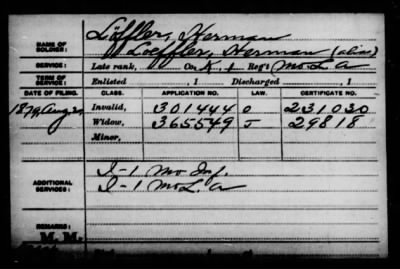 Löffler, Herman
NAME OF SOLDIER: Loeffler, Herman (alias)
SERVICE: Late rank, Co. K, 1 Reg't Mo L A
TERM OF SERVICE: Enlisted , 1 Discharged , 1
DATE OF FILING. CLASS. APPLICATION NO. LAW. CERTIFICATE NO.
1879, Aug Invalid, 301444 231030
Widow, 365549 29818
Minor,
I-1 Mo Inf.
ADDITIONAL SERVICES: I-1 Mo L. A
REMARKS:
M. M.